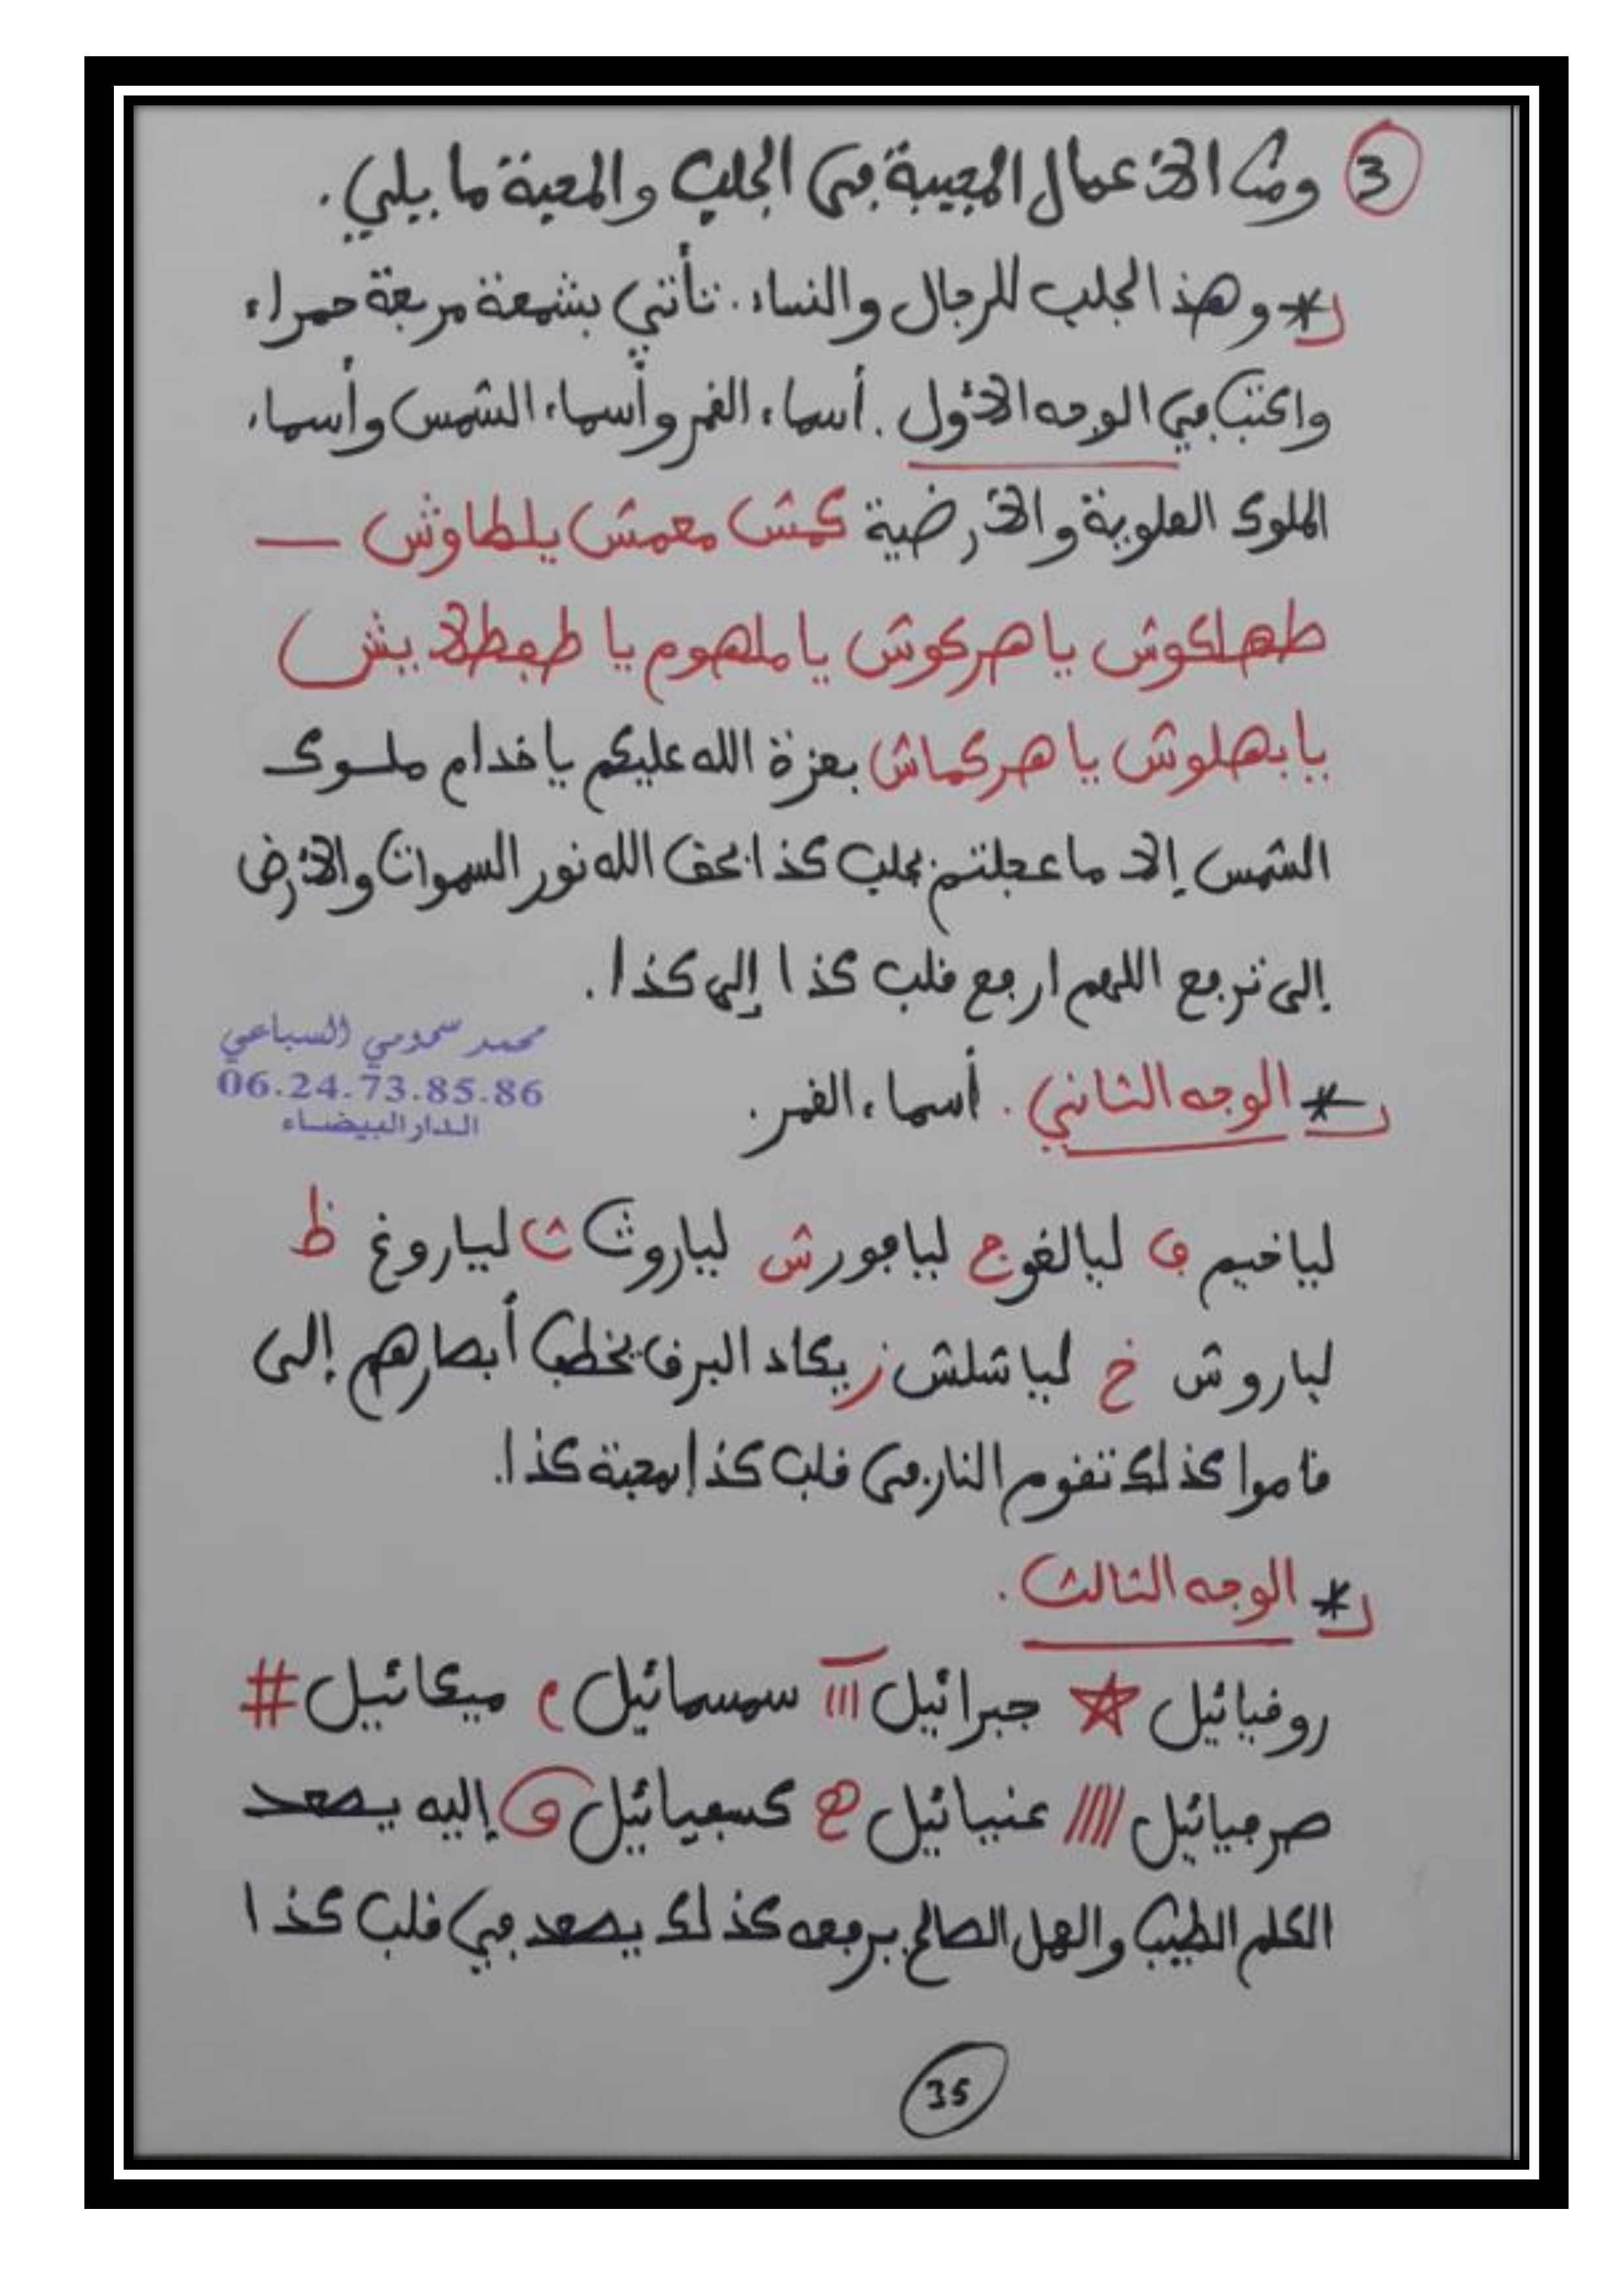 3 ومن الأعمال المجيبة في الجلب والمحبة ما يلي.
* وهذ الجلب للرجال والنساء. تأتي بشمعة مربعة حمراء
واكتب في الوجه الأول. أسماء القمر وأسماء الشمس وأسماء
الملوك العلوية والأرضية كمش معمش يلطاوش —
طهلكوش يا هركوش يا ملهوم يا طفطلا بيش
يا بهلوش يا هركماش بعزة الله عليكم يا خدام ملوك
الشمس إلا ما عجلتم بجلب كذا بحق الله نور السموات والأرض
إلى ترجع اللهم ارجع قلب كذا إلى كذا.
محمد سحومي السباعي
06.24.73.85.86
الدار البيضاء
* الوجه الثاني. أسماء القمر.
لياخيم ف ليالغو ج ليافور ش لياروث ث لياروغ ظ
لياروش خ لياشلش ز يكاد البرق يخطب أبصارهم إلى
قاموا كذلك تقوم النار في قلب كذا بمحبة كذا.
* الوجه الثالث.
روقيائيل ☆ جبرائيل ااا سمسمائيل م ميكائيل #
صرفيائيل //// عنيائيل ھ كسفيائيل و إليه يصعد
الكلم الطيب والعمل الصالح يرفعه كذلك يصعد في قلب كذا
35